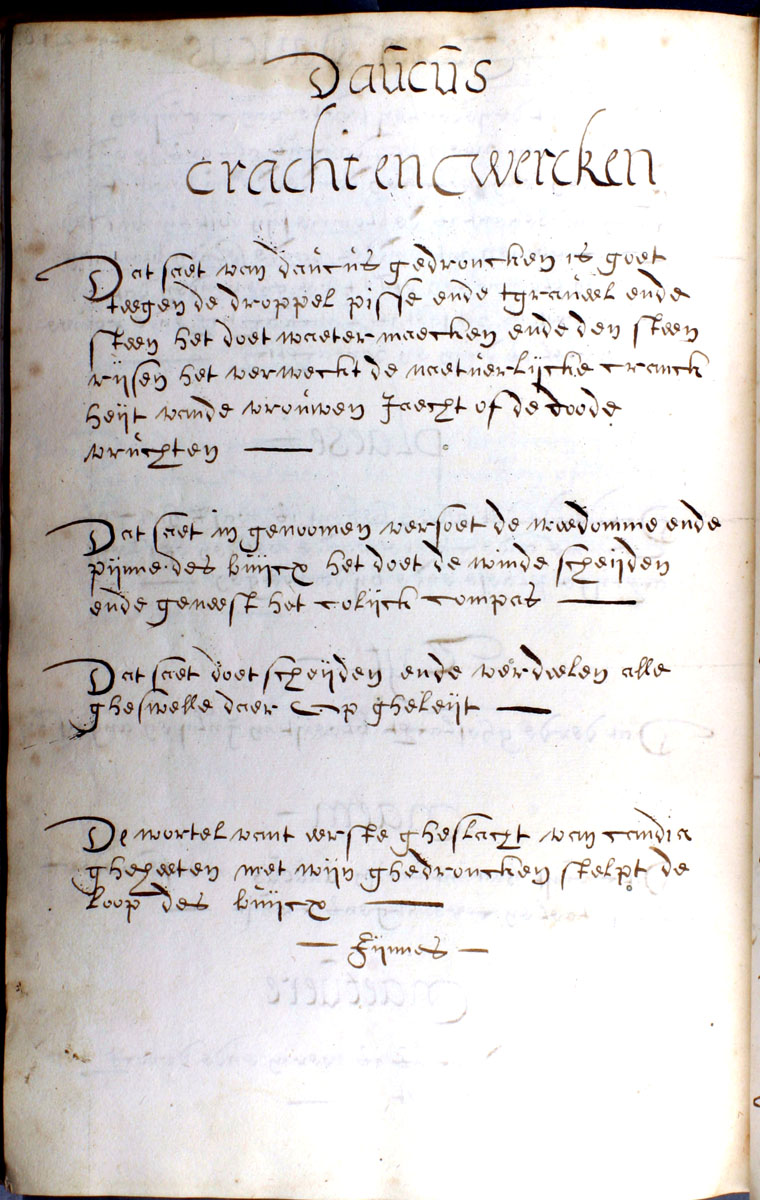 Daucus
cracht en wercken
Dat saet van daucus gedroncken is goet
teegen de droppel pisse ende tgraveel ende
steen het doet waeter maecken ende den steen
rijsen het verweckt de naetuerlijcke cranck
heijt vande vrouwen Jaecht of de doode
vruchten
Dat saet in genoomen versoet de weedomme ende
pijnne des buijcx het doet de winde scheijden
ende geneest het colijck compas
Dat saet doet scheijden ende verdeelen alle
gheswelle daer Op gheleijt
De wortel vant eerste gheslacht van candia
gheheeten met wijn ghedroncken stelpt de
loop des buijcx
Fijnnes